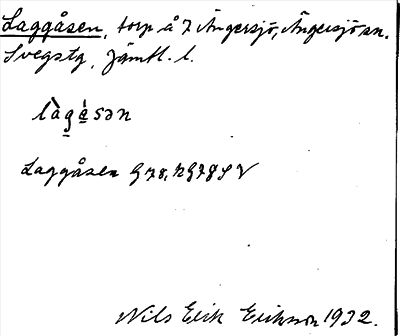 Laggåsen, torp å 7 Ängersjö, Ängersjö sn.
Svegs tg, Jämtl. l.
làgä̀sən
Laggåsen G 78, NG78 SV
Nils Erik Eriksson 1932.